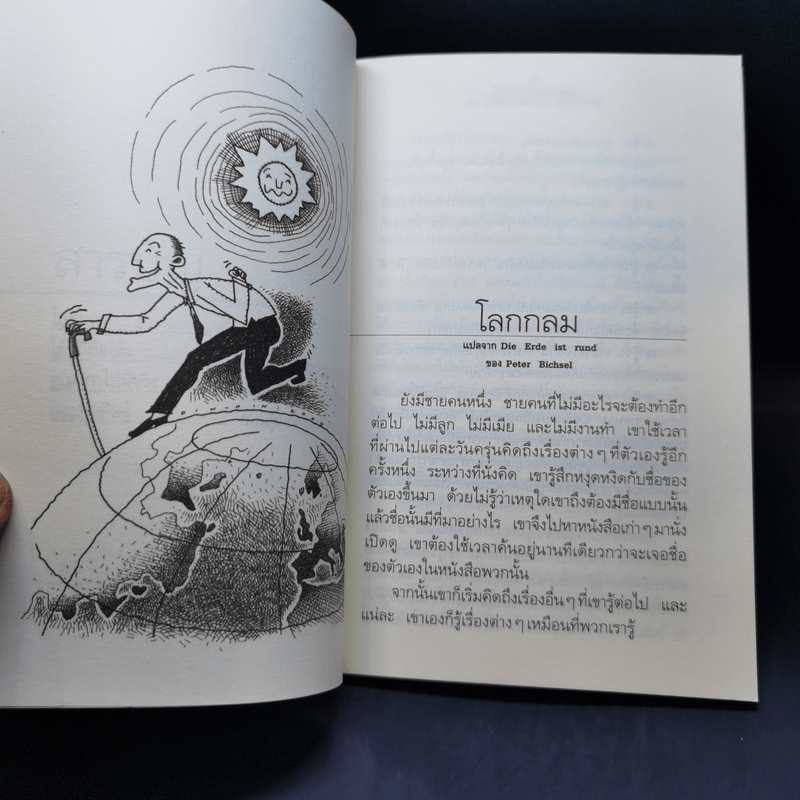 โลกกลม
แปลจาก Die Erde ist rund
ของ Peter Bichsel
ยังมีชายคนหนึ่ง ชายคนที่ไม่มีอะไรจะต้องทำอีก
ต่อไป ไม่มีลูก ไม่มีเมีย และไม่มีงานทำ เขาใช้เวลา
ที่ผ่านไปแต่ละวันครุ่นคิดถึงเรื่องต่าง ๆ ที่ตัวเองรู้อีก
ครั้งหนึ่ง ระหว่างที่นั่งคิด เขารู้สึกหงุดหงิดกับชื่อของ
ตัวเองขึ้นมา ด้วยไม่รู้ว่าเหตุใดเขาถึงต้องมีชื่อแบบนั้น
แล้วชื่อนั้นมีที่มาอย่างไร เขาจึงไปหาหนังสือเก่า ๆ มานั่ง
เปิดดู เขาต้องใช้เวลาค้นอยู่นานทีเดียวกว่าจะเจอชื่อ
ของตัวเองในหนังสือพวกนั้น
จากนั้นเขาก็เริ่มคิดถึงเรื่องอื่น ๆ ที่เขารู้ต่อไป และ
แน่ละ เขาเองก็รู้เรื่องต่าง ๆ เหมือนที่พวกเรารู้